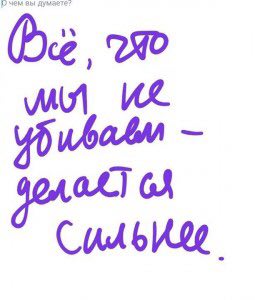 О чем вы думаете?
Всё, что
мы не
убиваем –
делается
сильнее.